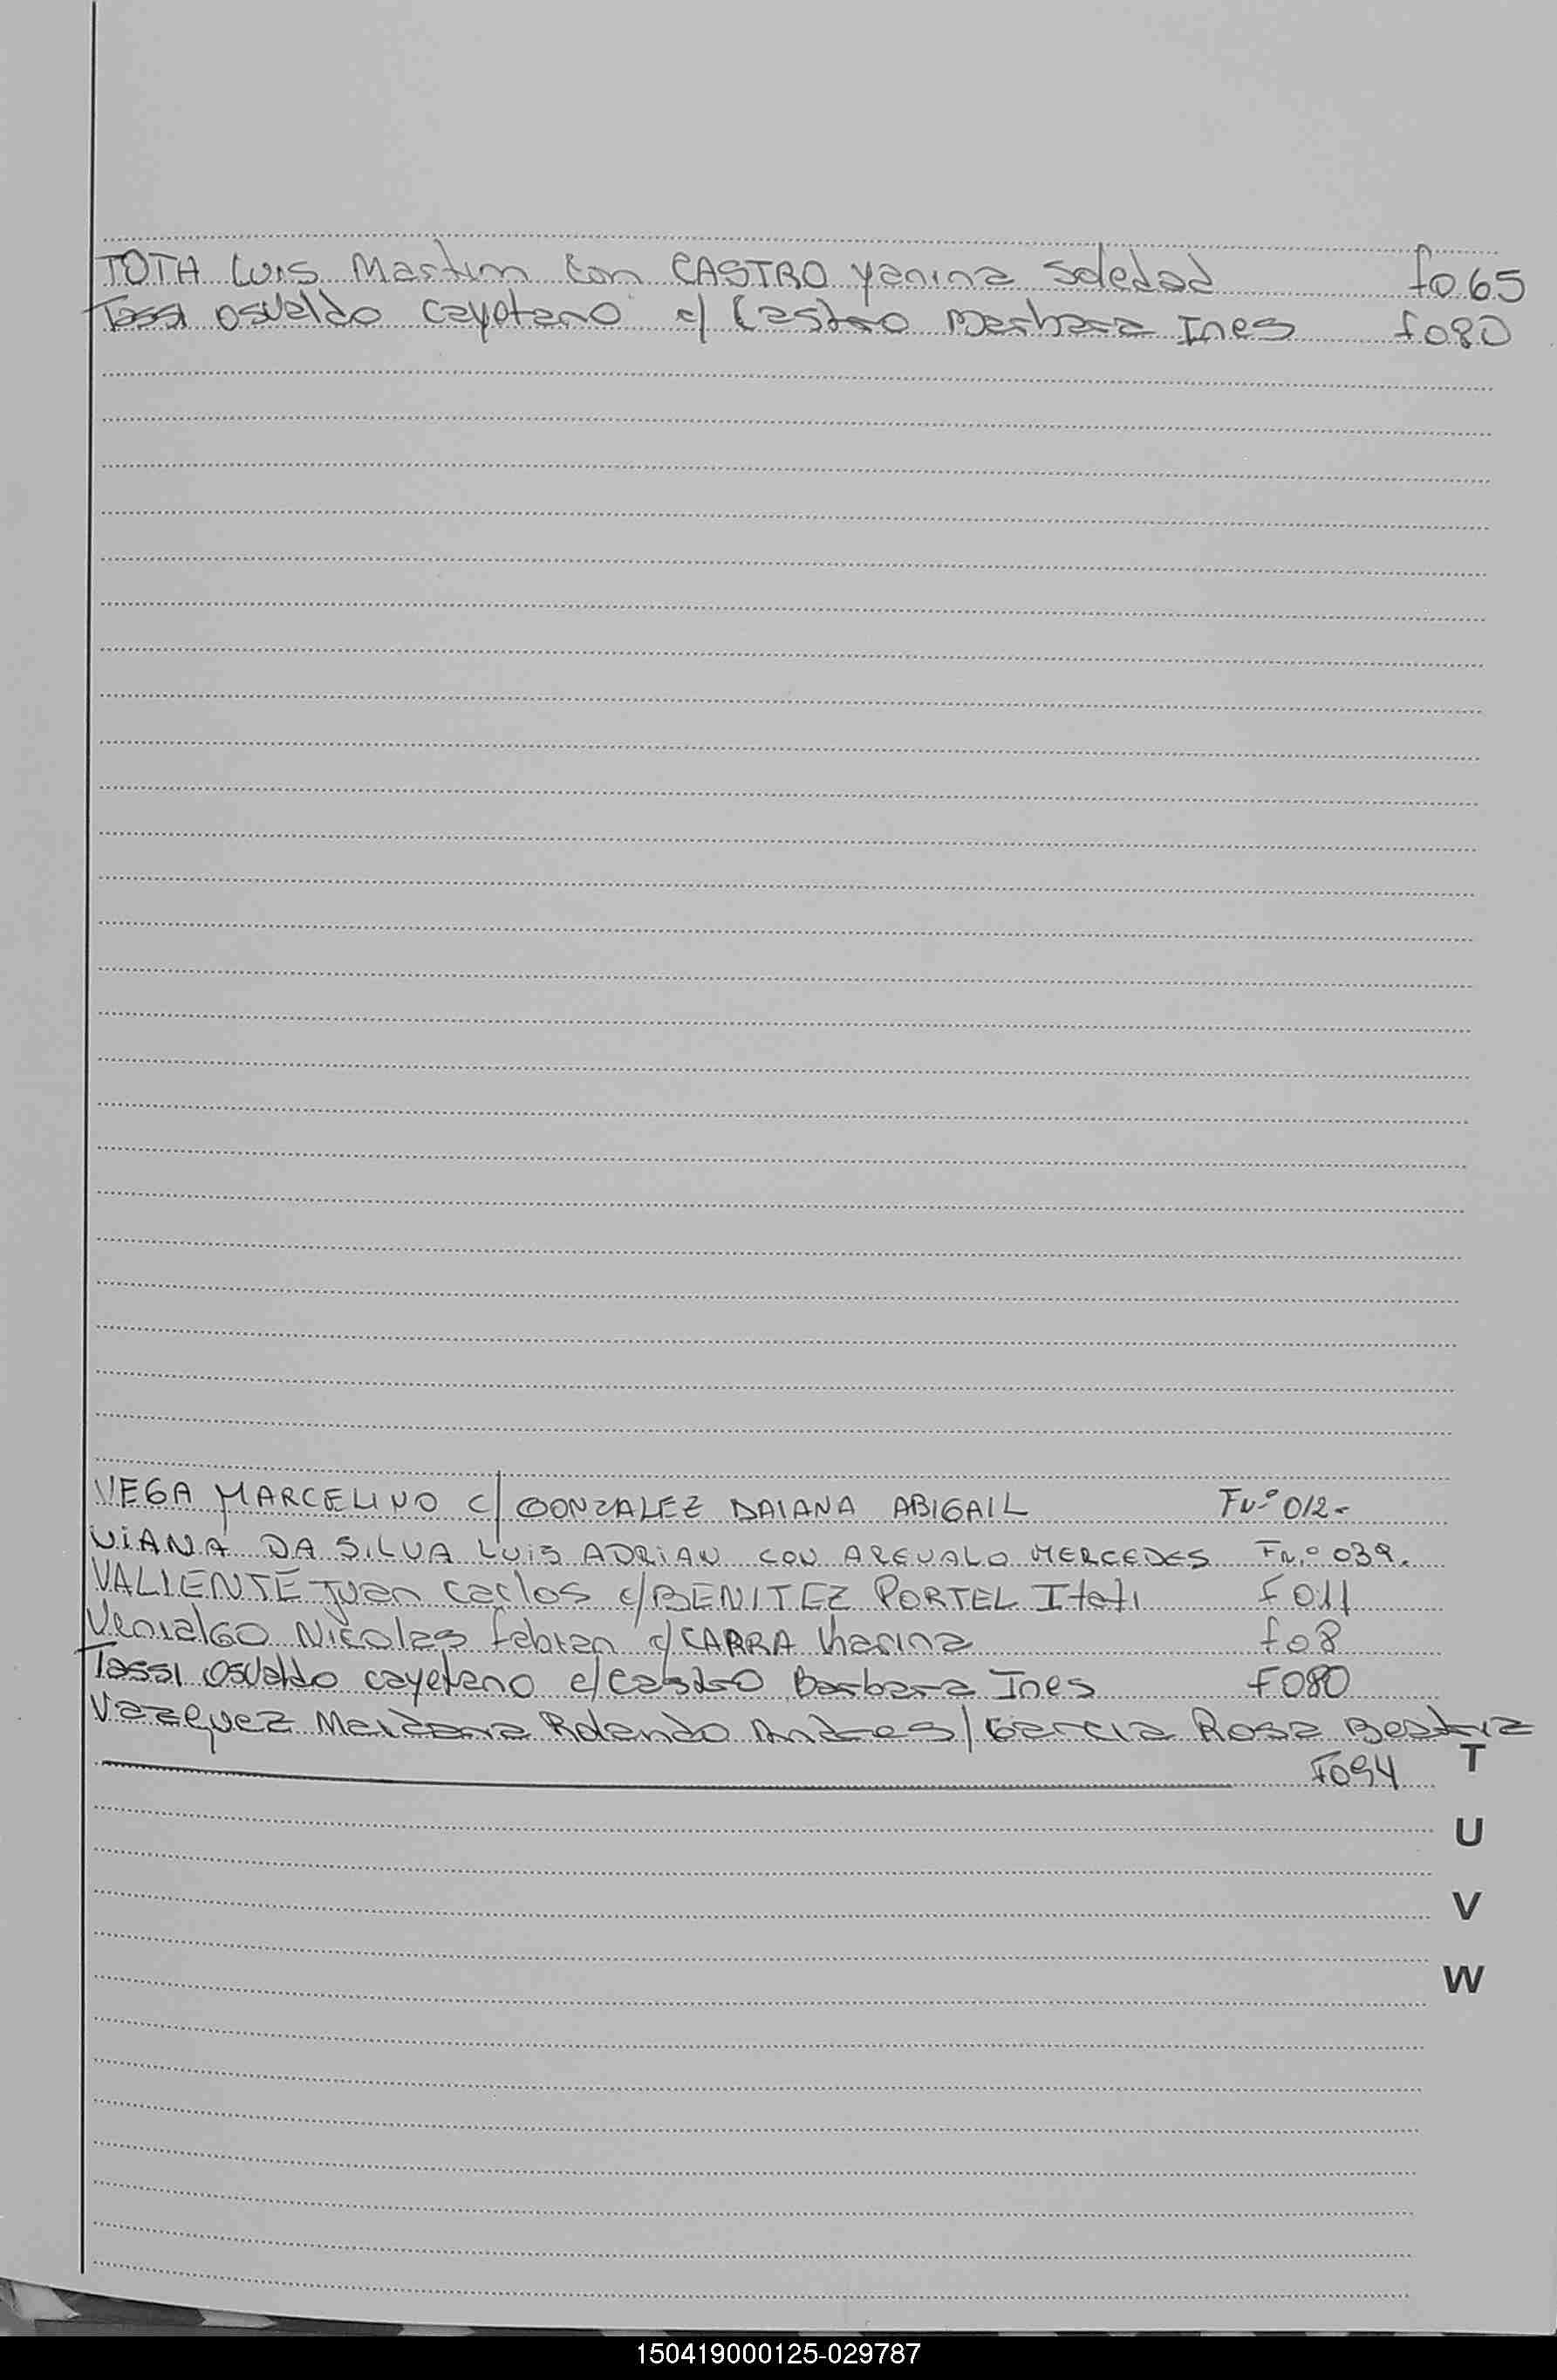 TOTH Luis Martin con CASTRO Yanina Soledad fo 65
Tassi Osvaldo Cayetano c/ Castro Barbara Ines fo80
VEGA MARCELINO C/ GONZALEZ DAIANA ABIGAIL Fn.º 012-
VIANA DA SILVA LUIS ADRIAN CON AREVALO MERCEDES Fn.º 039.
VALIENTE Juan Carlos c/ BENITEZ PORTEL Itati F 011
Venialgo Nicolas fabian c/ CARRA Karina fo8
Tassi Osvaldo cayetano c/ Castro Barbara Ines F080
Vazquez Rolando Andres / Garcia Rosa Beatriz
T
F094
U
V
W
150419000125-029787